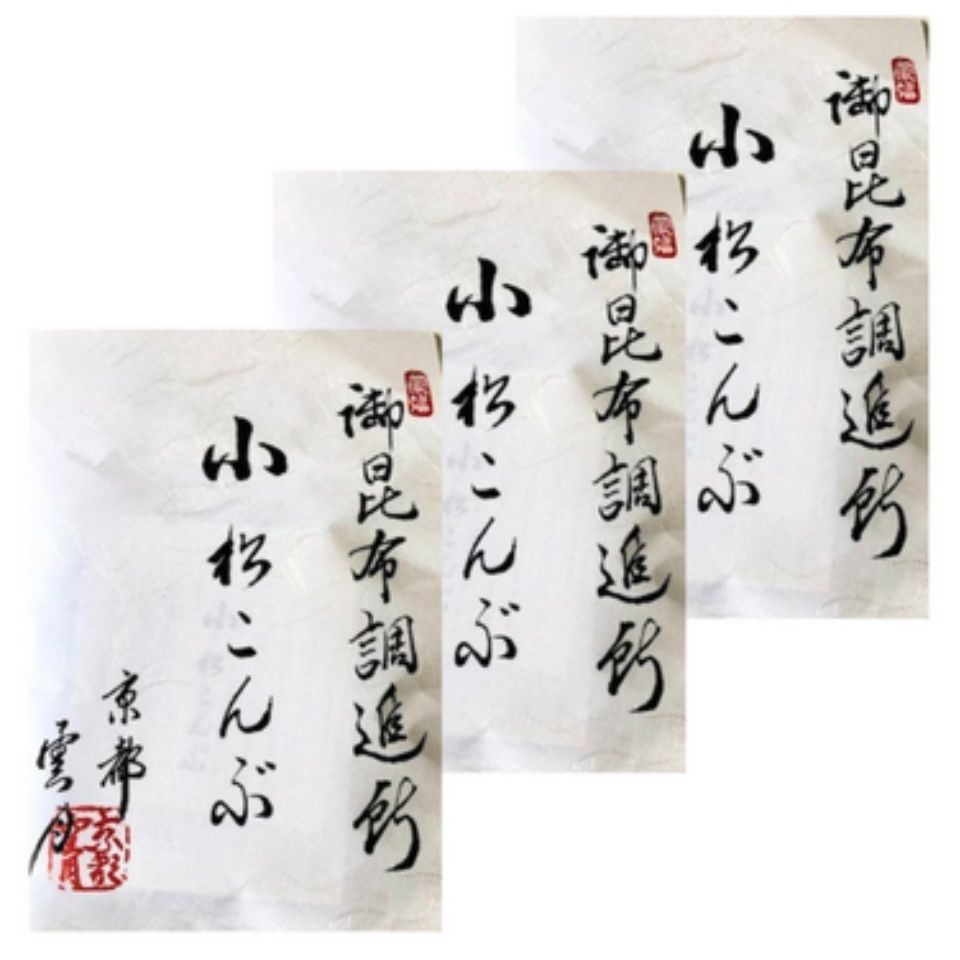 御昆布調進所
小松こんぶ
京都
雲月
御昆布調進所
小松こんぶ
御昆布調進所
小松こんぶ